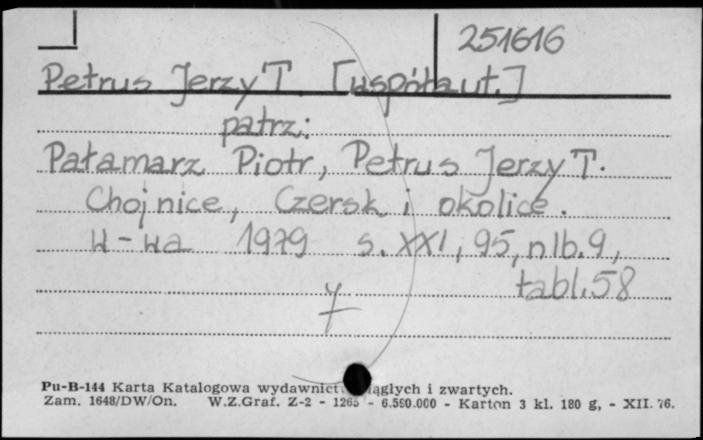 251616
Petrus Jerzy T. [współaut.]
patrz:
Pałamarz Piotr, Petrus Jerzy T.
Chojnice, Czersk i okolice.
W-wa 1979 s. XXI, 95, nlb. 9,
tabl. 58
Pu-B-144 Karta Katalogowa wydawnict ągłych i zwartych.
Zam. 1648/DW/On. W.Z.Graf. Z-2 - 1265 - 6.590.000 - Karton 3 kl. 180 g, - XII. 76.